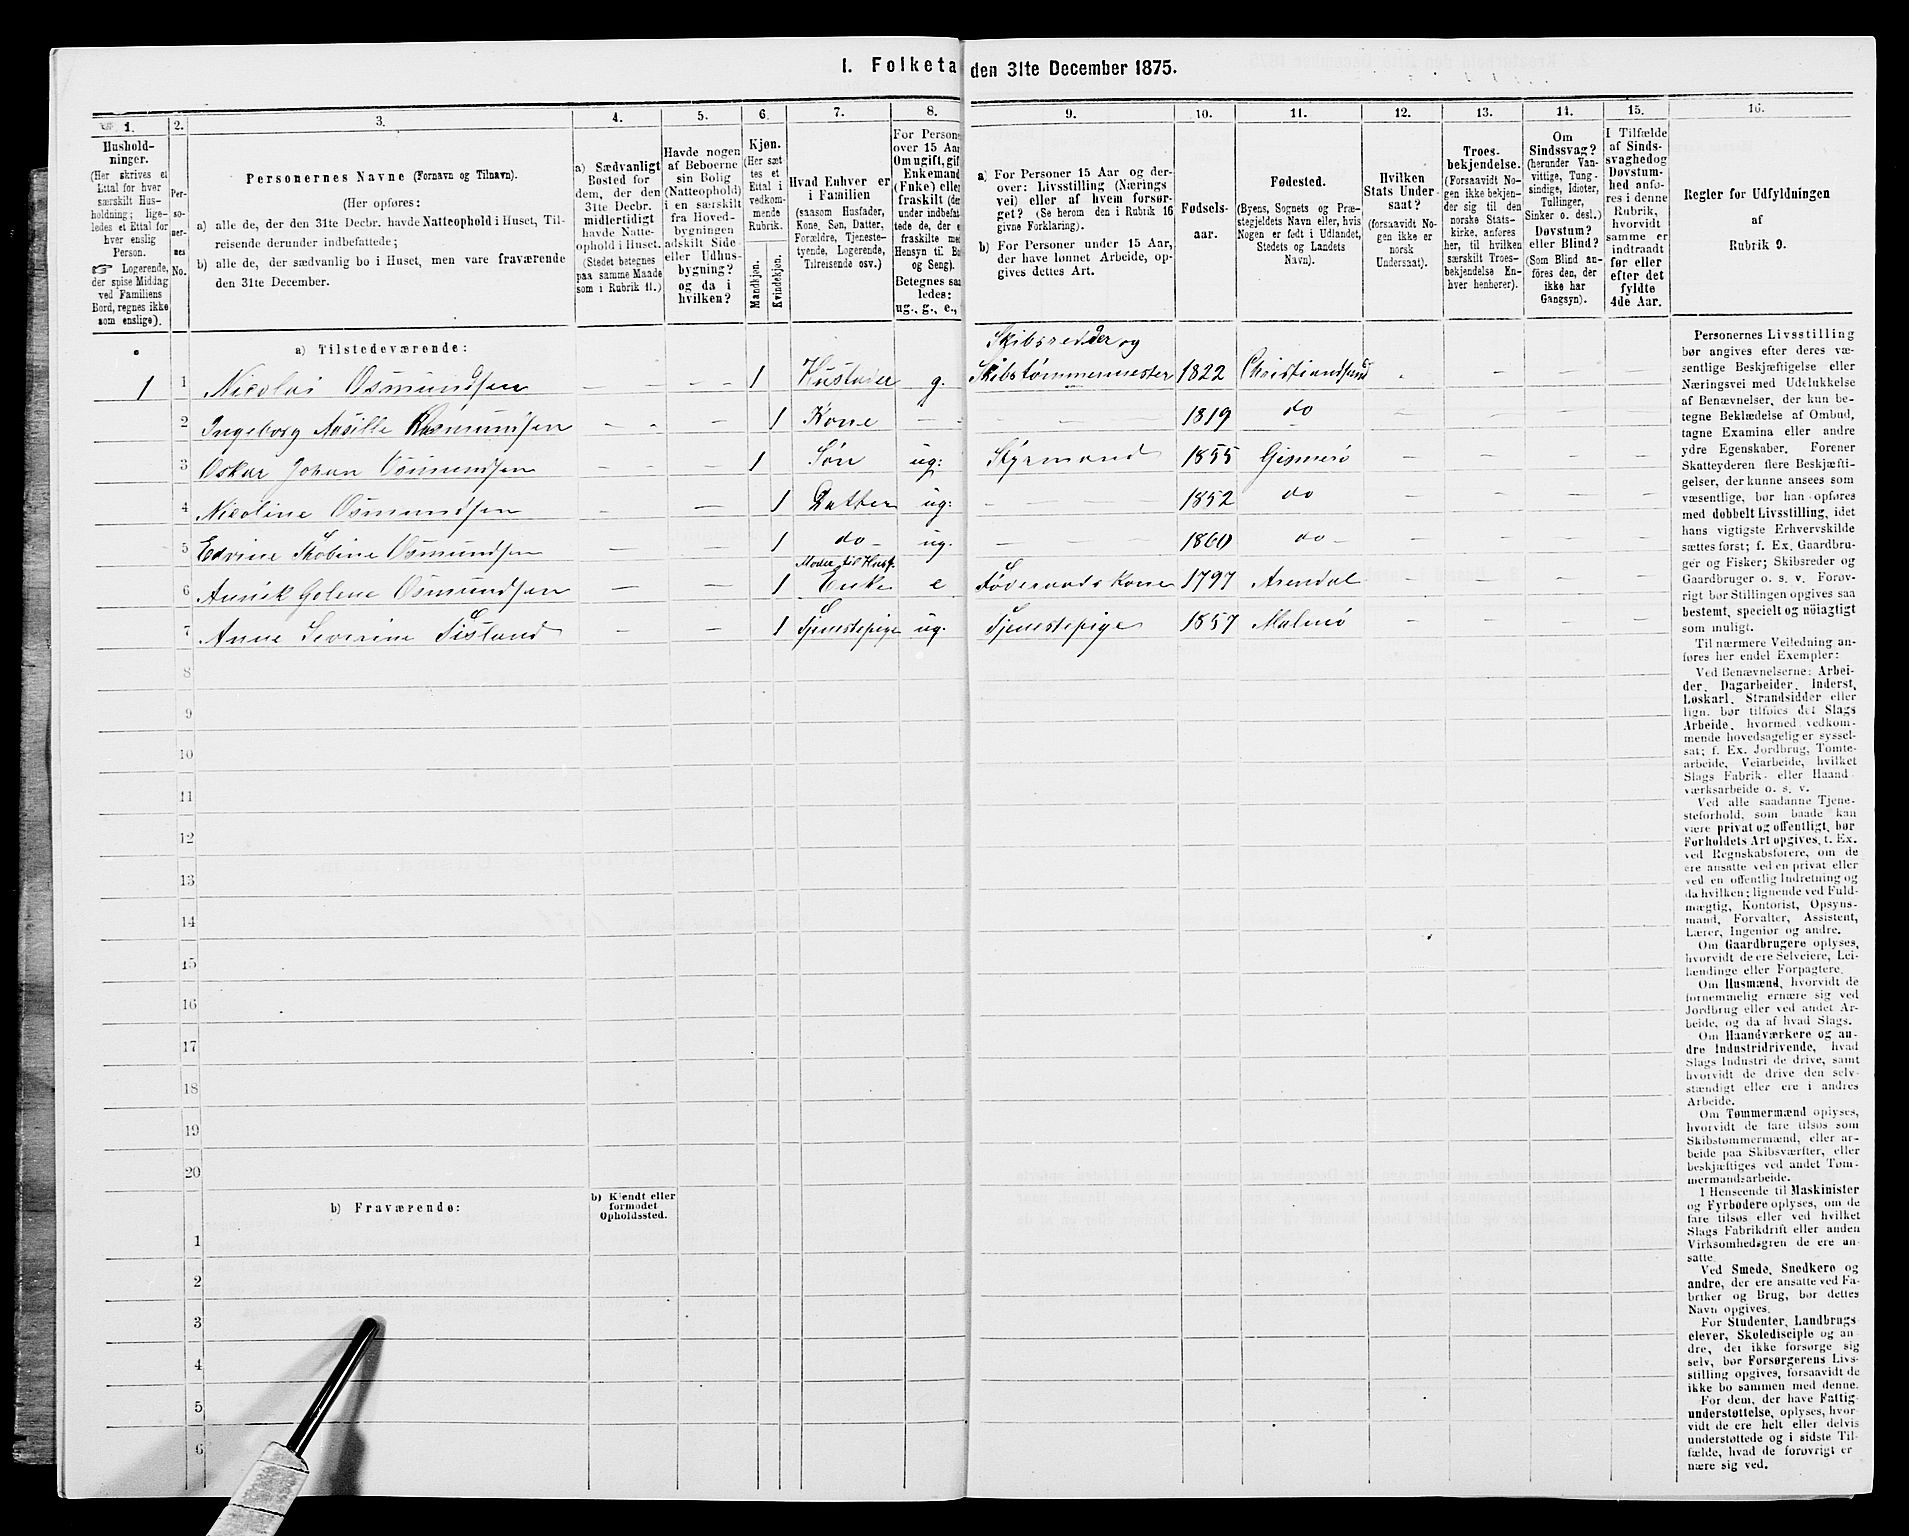 I. Folketa den 31te December 1875.
1. 2. 3. 4. 5. 6. 7. 8. 9. 10. 11. 12. 13. 14. 15. 16.
Hushold-
ninger.
(Her skrives et
Ettal for hver
særskilt Hus-
holdning; lige-
ledes et Ettal for
hver enslig
Person.
☞ Logerende,
der spise Middag
ved Familiens
Bord, regnes ikke
som enslige).
Per-
so-
ner-
nes
No.
Personernes Navne (Fornavn og Tilnavn).
(Her opføres:
a) alle de, der den 31te Decbr. havde Natteophold i Huset, Til-
reisende derunder indbefattede;
b) alle de, der sædvanlig bo i Huset, men vare fraværende
den 31te December.
a) Sædvanligt
Bosted for
dem, der den
31te Decbr.
midlertidigt
havde Natte-
ophold i Huset.
(Stedet betegnes
paa samme Maade
som i Rubrik 11.)
Havde nogen
af Beboerne
sin Bolig
(Natteophold)
i en særskilt
fra Hoved-
bygningen
adskilt Side-
eller Udhus-
bygning?
og da i
hvilken?
Kjøn.
(Her sæt
tes et
Ettal i
vedkom-
mende
Rubrik.
Mandkjøn.
Kvindekjøn.
Hvad Enhver er
i Familien
(saasom Husfader,
Kone, Søn, Datter,
Forældre, Tjeneste-
tyende, Logerende,
Tilreisende osv.)
For Person
over 15 Aar
Om ugift, gif
Enkemand
(Enke) elle
fraskilt (de
under indbefat
tede de, der e
fraskilte me
Hensyn til Bo
og Seng).
Betegnes saa
ledes:
ug., g., e.,
a) For Personer 15 Aar og der-
over: Livsstilling (Nærings
vei) eller af hvem forsør-
get? (Se herom den i Rubrik 16
givne Forklaring).
b) For Personer under 15 Aar,
der have lønnet Arbeide, op-
gives dettes Art.
Fødsels-
aar.
Fødested.
(Byens, Sognets og Præ-
stegjeldets Navn eller, hvis
Nogen er født i Udlandet,
Stedets og Landets
Navn).
Hvilken
Stats Under-
saat?
(forsaavidt No-
gen ikke er
norsk
Undersaat).
Troes-
bekjendelse.
(Forsaavidt No-
gen ikke bekjen-
der sig til den
norske Stats-
kirke, anføres
her, til hvilken
særskilt Troes-
bekjendelse En-
hver henhører).
Om
Sindssvag?
(herunder Van-
vittige, Tung-
sindige, Idioter,
Tullinger,
Sinker o. desl.)
Døvstum?
eller Blind?
(Som Blind an-
føres den, der
ikke har
Gangsyn).
I Tilfælde
af Sinds-
svaghed og
Døvstum-
hed anfø-
res i denne
Rubrik,
hvorvidt
samme er
indtraadt
før eller
efter det
fyldte
4de Aar.
Regler for Udfyldningen
af
Rubrik 9.
a) Tilstedeværende:
Skibsredder og
1 1 Nicolai Osmundsen - - - 1 Husfader g. Skibstømmermester 1822 Christiansund
2 Ingeborg Aasille Osmundsen 1 Kone 1819 do
3 Oskar Johan Osmundsen 1 Søn ug: Styrmand 1855 Gismerö
4 Nicoline Osmundsen 1 Datter ug: 1852 do
5 Edvine Thobine Osmundsen 1 do ug. 1860 do
Moder til Husf.
6 Annik Golene Osmundsen 1 Enke e Föderaads Kone 1797 Arendal
7 Anne Severine Sisland 1 Tjenestepige ug. Tjenestepige 1857 Malmö
8
9
10
11
12
13
14
15
16
17
18
19
20
b) Fraværende:
b) Kjendt eller
formodet
Opholdssted.
1
2
3
4
5
6
Personernes Livsstilling
bør angives efter deres væ-
sentlige Beskjæftigelse eller
Næringsvei med Udelukkelse
af Benævnelser, der kun be-
tegne Beklædelse af Ombud,
tagne Examina eller andre
ydre Egenskaber. Forener
Skatteyderen flere Beskjæfti-
gelser, der kunne ansees som
væsentlige, bør han opføres
med dobbelt Livsstilling, idet
hans vigtigste Erhvervskilde
sættes først; f. Ex. Gaardbru-
ger og Fisker; Skibsreder og
Gaardbruger o. s. v. Forøv-
rigt bør Stillingen opgives saa
bestemt, specielt og nöiagtigt
som muligt.
Til nærmere Veiledning an-
føres her endel Exempler:
Ved Benævnelserne: Arbei-
der, Dagarbeider, Inderst,
Løskarl, Strandsidder eller
lign. bør tilføies det Slags
Arbeide, hvormed vedkom-
mende hovedsagelig er syssel-
sat; f. Ex. Jordbrug, Tomte-
arbeide, Veiarbeide, hvilket
Slags Fabrik- eller Haand-
værksarbeide o. s. v.
Ved alle saadanne Tjene-
steforhold, som baade kan
være privat og offentligt, bør
Forholdets Art opgives, f. Ex.
ved Regnskabsførere, om de
ere ansatte ved en privat eller
ved en offentlig Indretning og
da hvilken; lignende ved Fuld-
mægtig, Kontorist, Opsyns-
mand, Forvalter, Assistent,
Lærer, Ingeniør og andre.
Om Gaardbrugere oplyses,
hvorvidt de ere Selveiere, Lei-
lændinge eller Forpagtere.
Om Husmænd, hvorvidt de
fornemmelig ernære sig ved
Jordbrug eller ved andet Ar-
beide, og da af hvad Slags.
Om Haandværkere og an-
dre Industridrivende, hvad
Slags Industri de drive, samt
hvorvidt de drive den selv-
stændigt eller ere i andres
Arbeide.
Om Tømmermænd oplyses,
hvorvidt de fare tilsøs som
Skibstømmermænd, eller ar-
beide paa Skibsværfter, eller
beskjæftiges ved andet Tøm-
mermandsarbeide.
I Henseende til Maskinister
og Fyrbødere oplyses, om de
fare tilsøs eller ved hvilket
Slags Fabrikdrift eller anden
Virksomhedsgren de ere an-
satte.
Ved Smede, Snedkere og
andre, der ere ansatte ved Fa-
briker og Brug, bør dettes
Navn opgives.
For Studenter, Landbrugs-
elever, Skoledisciple og an-
dre, der ikke forsørge sig
selv, bør Forsørgerens Livs-
stilling opgives, forsaavidt de
ikke bo sammen med denne.
For dem, der have Fattig-
understøttelse, oplyses, hvor-
vidt de ere helt eller delvis
understøttede og i sidste Til-
fælde, hvad de forøvrigt er
nære sig ved.